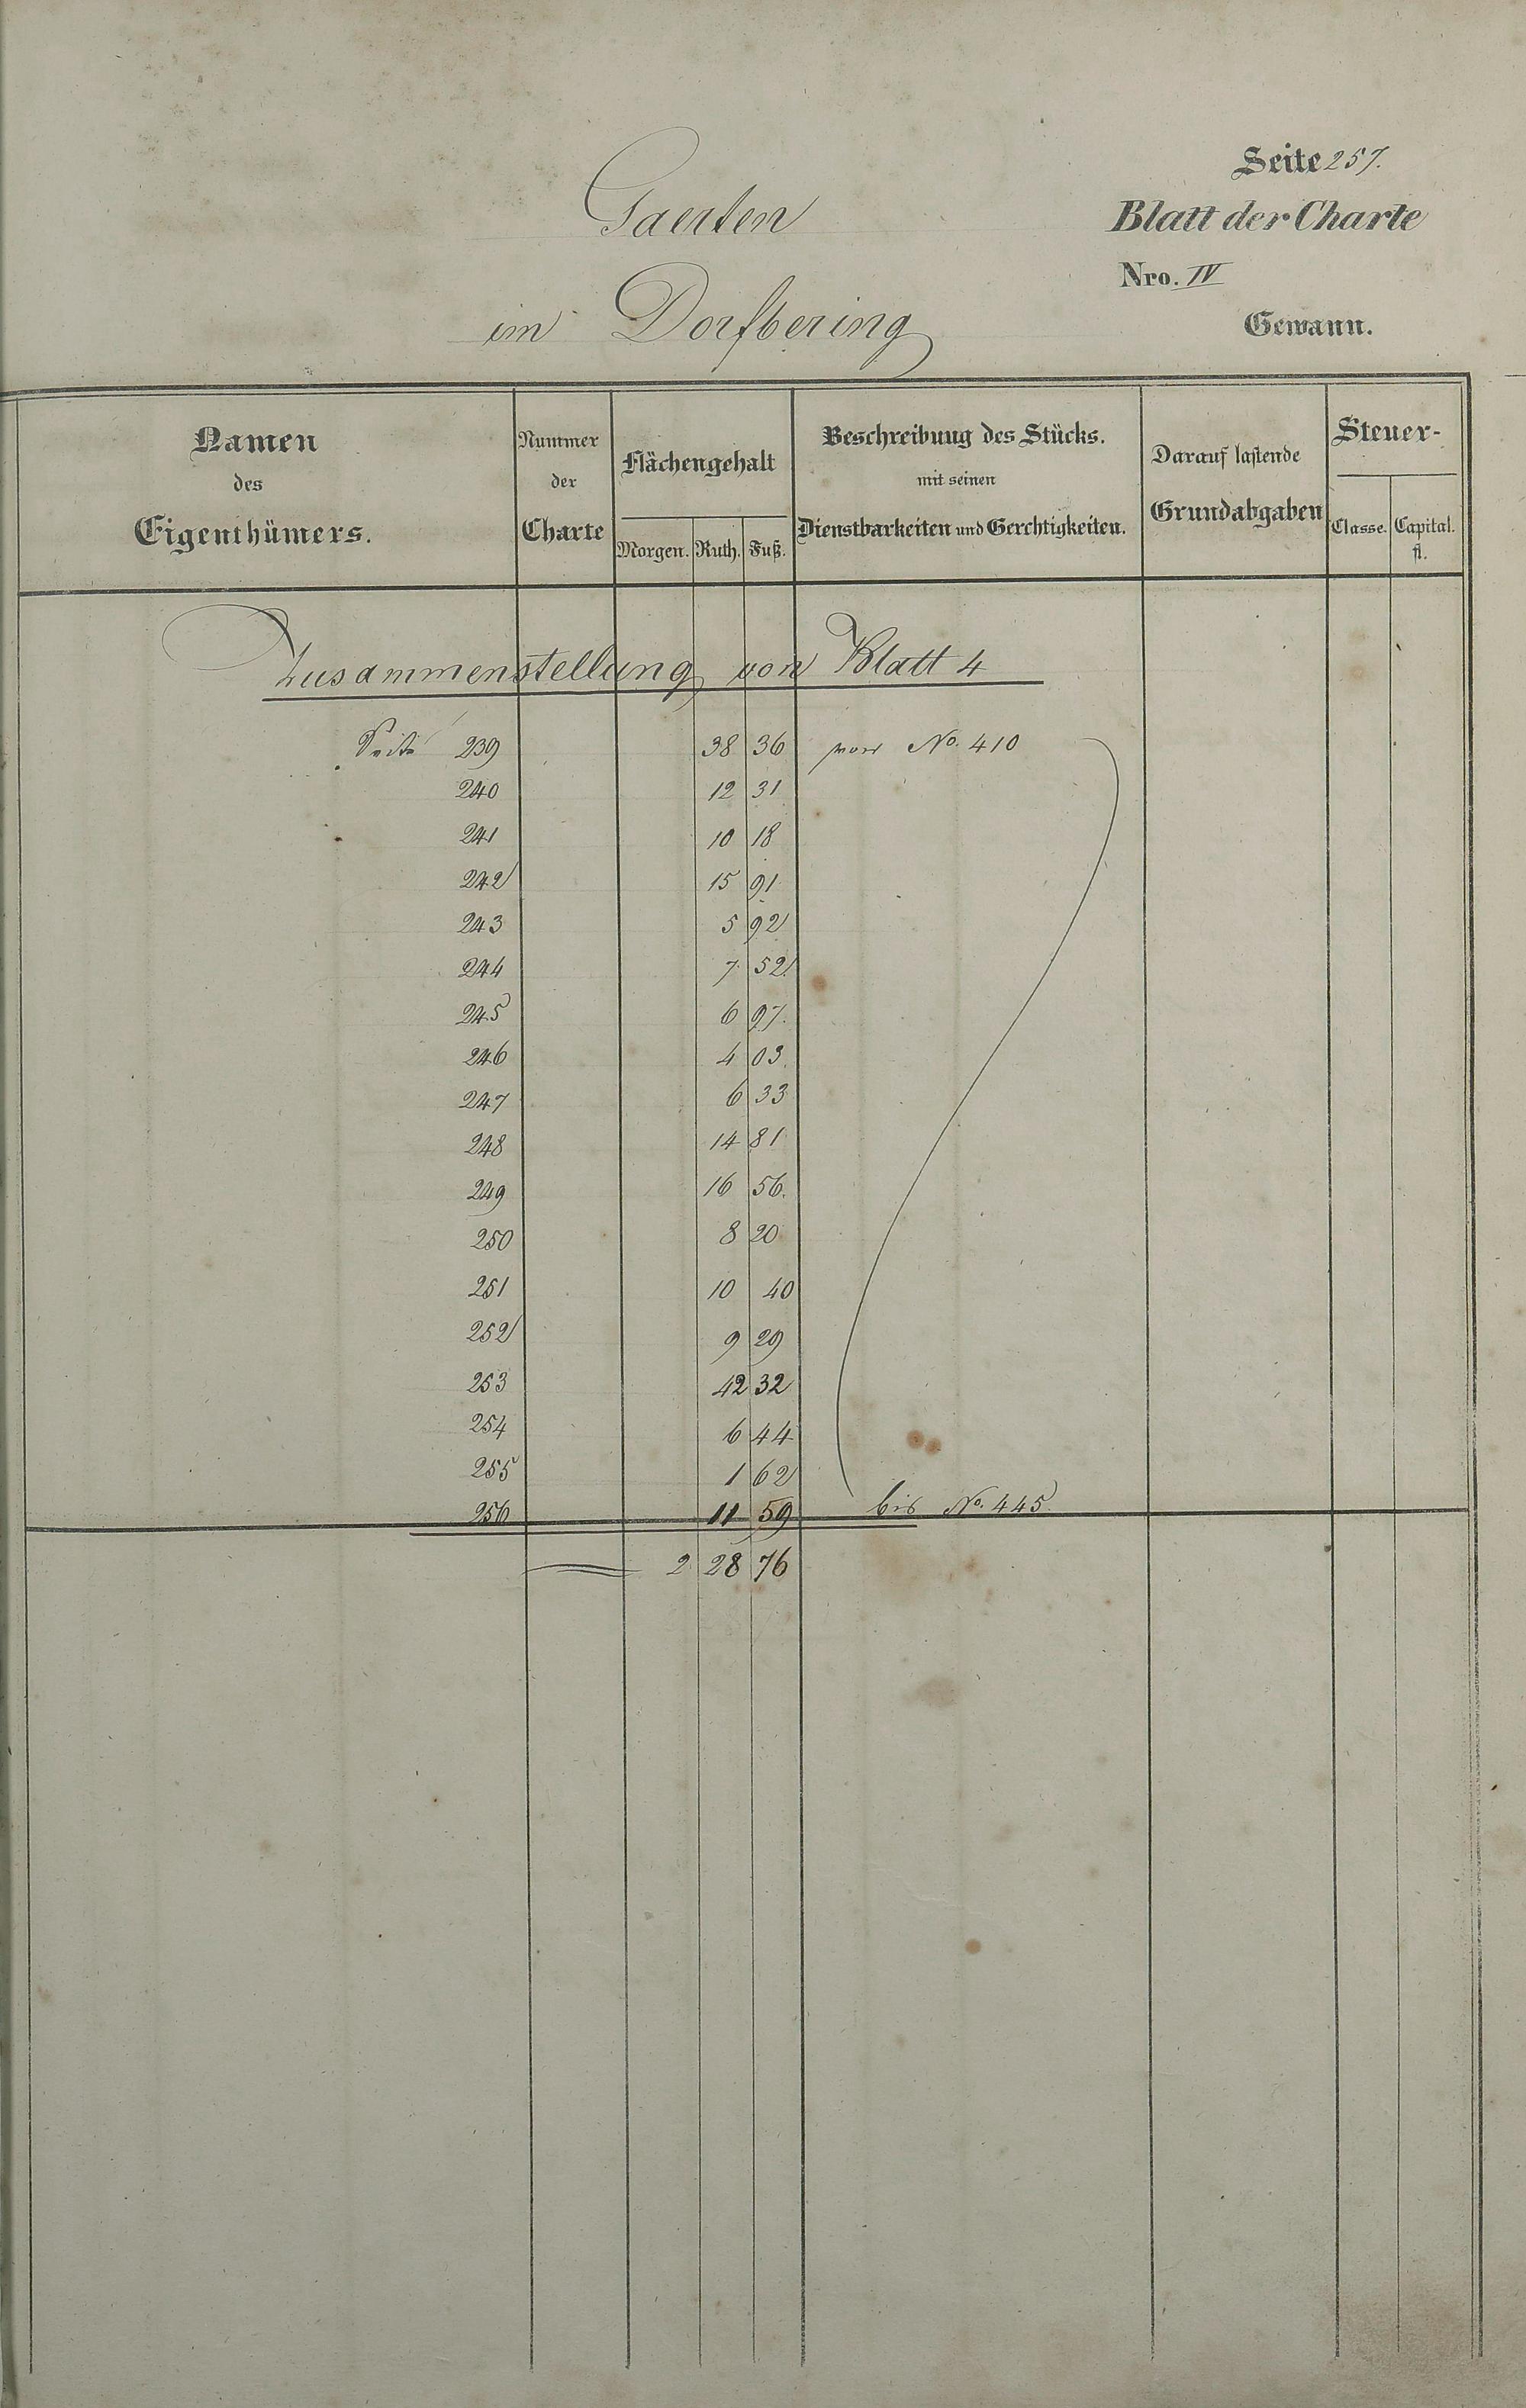 Seite 257.
Gaerten
Blatt der Charte
Nro. IV
im Dorfbering
Gewann.
Namen des Eigenthümers.
Nummer der Charte
Flächengehalt
Morgen. Ruth. Fuß.
Beschreibung des Stücks.
mit seinen
Dienstbarkeiten und Gerechtigkeiten.
Darauf lastende
Grundabgaben
Steuer-
Classe. Capital.
fl.
Zusammenstellung von Blatt 4
Seite 239 38 36 von No. 410
240 12 31
241 10 18
242 15 91
243 5 92
244 7 52
245 6 97.
246 4 03.
247 6 33
248 14 81
249 16 56.
250 8 20
251 10 40
252 9 29
253 42 32
254 6 44
255 1 62
256 11 59 bis No. 445
2 28 76